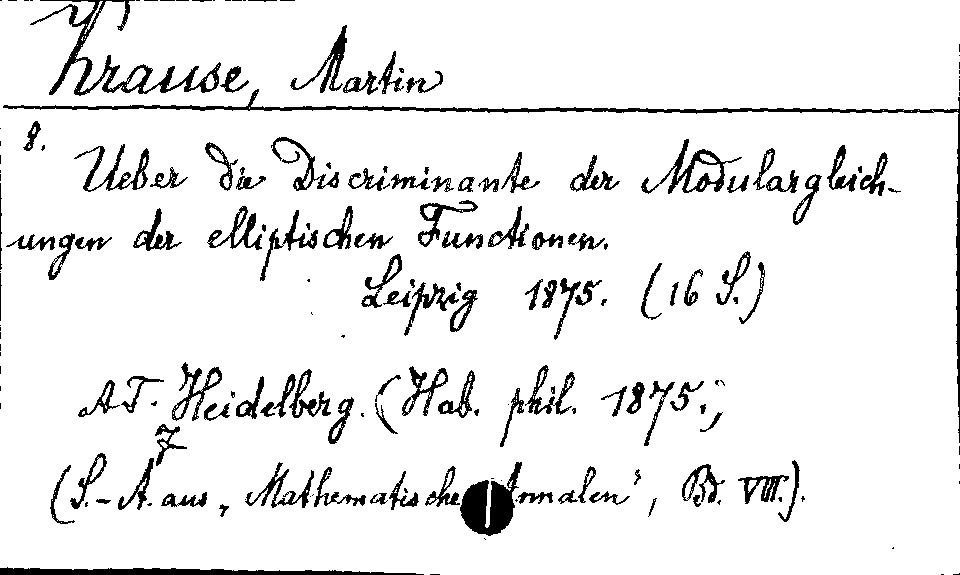 Krause, Martin
8.
Ueber die Discriminante der Modulargleich-
ungen der elliptischen Functionen.
Leipzig 1875. (16 S.)
AT. Heidelberg. (Hab. phil. 1875.)
(S.-A. aus „Mathematische Annalen", Bd. VIII.).